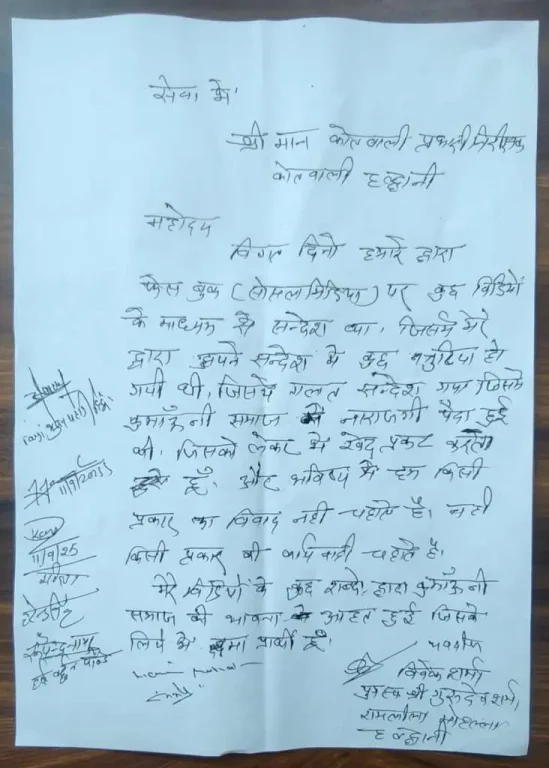 सेवा मे
श्री मान कोतवाली प्रभारी निरीक्षक
कोतवाली हल्द्वानी
महोदय
विगत दिनो हमारे द्वारा
फेस बुक (सोसलमिडिया) पर कुछ विडियों
के माध्यम से सन्देश था, जिसमे मेरे
द्वारा अपने सन्देश मे कुछ त्रुटिया हो
गयी थी, जिससे गलत सन्देश गया जिससे
कुमाऊँनी समाज मे नाराजगी पैदा हुई
थी, जिसको लेकर मे खेद प्रकट करता
हूँ, और भविष्य मे हम किसी
प्रकार का विवाद नही चाहते है। ना ही
किसी प्रकार की कार्यवाही चाहते है।
मेरे विडियों के कुछ शब्दो द्वारा कुमाऊँनी
समाज की भावना आहत हुई जिसके
लिये मे क्षमा प्रार्थी हूँ।
11/9/2025
11/9/25
भवदीय
विवेक शर्मा
पुत्र श्री गुरुदेव शर्मा
रामलीला मोहल्ला
हल्द्वानी